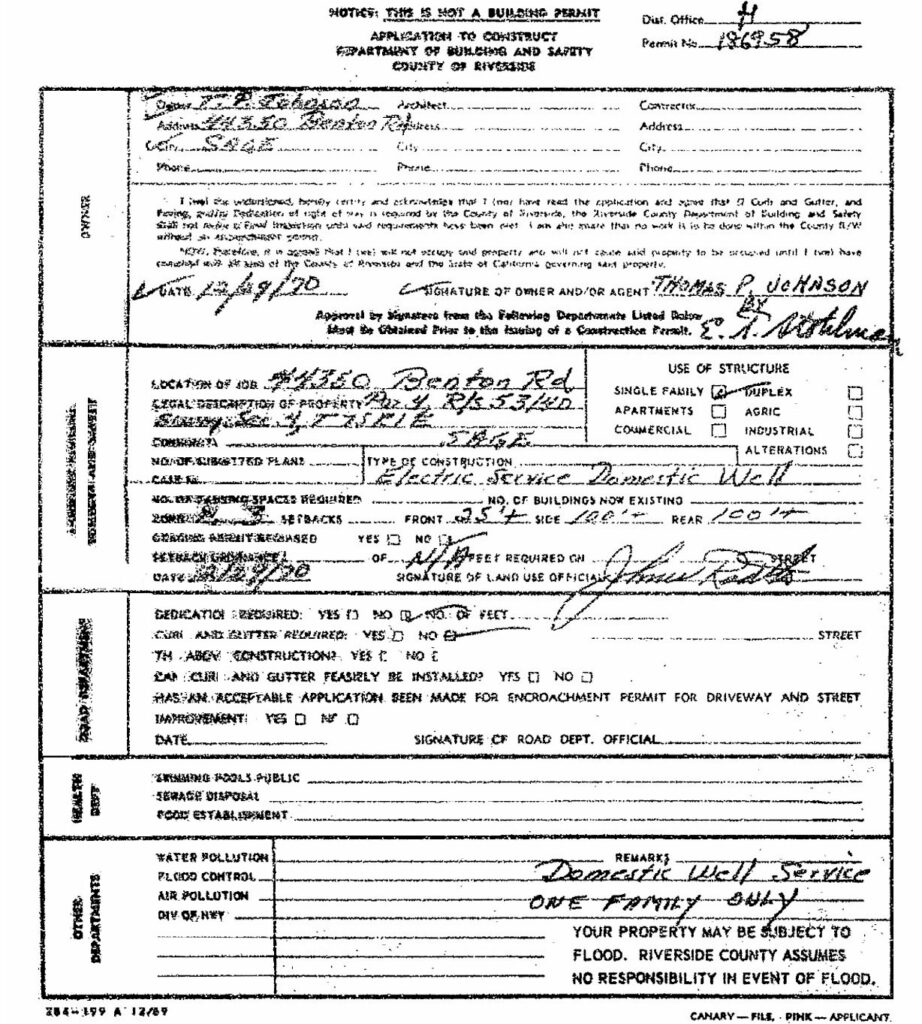 NOTICE: THIS IS NOT A BUILDING PERMIT
APPLICATION TO CONSTRUCT
DEPARTMENT OF BUILDING AND SAFETY
COUNTY OF RIVERSIDE
Dist. Office H
Permit No. 186958
OWNER
Owner T. P. Johnson Architect Contractor
Address 44350 Benton Rd Address Address
City SAGE City City
Phone Phone Phone
I (we) the undersigned, hereby certify and acknowledge that I (we) have read the application and agree that if Curb and Gutter, and
Paving, and/or Dedication of right of way is required by the County of Riverside, the Riverside County Department of Building and Safety
shall not make a Final Inspection until said requirements have been met. I am also aware that no work is to be done within the County R/W
without an encroachment permit.
NOW, therefore, it is agreed that I (we) will not occupy said property and will not cause said property to be occupied until I (we) have
complied with all laws of the County of Riverside and the State of California governing said property.
DATE 12/29/70 SIGNATURE OF OWNER AND/OR AGENT THOMAS P. JOHNSON
BY
Approval by Signature from the Following Departments Listed Below
Must Be Obtained Prior to the Issuing of a Construction Permit.
LOCATION OF JOB 44350 Benton Rd
LEGAL DESCRIPTION OF PROPERTY Por 4 R/S 53/40
Sec 3, T7S R1E
COMMUNITY SAGE
USE OF STRUCTURE
SINGLE FAMILY DUPLEX
APARTMENTS AGRIC
COMMERCIAL INDUSTRIAL
ALTERATIONS
NO. OF SUBMITTED PLANS TYPE OF CONSTRUCTION
CASE NO. Electric Service Domestic Well
NO. OF PARKING SPACES REQUIRED NO. OF BUILDINGS NOW EXISTING
ZONE SETBACKS FRONT 25'+ SIDE 100'+ REAR 100'+
GRADING PERMIT REQUIRED YES NO
SETBACK ORDINANCE OF N/A FEET REQUIRED ON STREET
DATE 12/29/70 SIGNATURE OF LAND USE OFFICIAL
ROAD DEPARTMENT
DEDICATION REQUIRED: YES NO NO. OF FEET
CURB AND GUTTER REQUIRED: YES NO STREET
CONSTRUCTION? YES NO
CAN CURB AND GUTTER FEASIBLY BE INSTALLED? YES NO
HAS AN ACCEPTABLE APPLICATION BEEN MADE FOR ENCROACHMENT PERMIT FOR DRIVEWAY AND STREET
IMPROVEMENT: YES NO
DATE SIGNATURE OF ROAD DEPT. OFFICIAL
HEALTH DEPT
SWIMMING POOLS PUBLIC
SEWAGE DISPOSAL
FOOD ESTABLISHMENT
OTHER DEPARTMENTS
WATER POLLUTION
FLOOD CONTROL
AIR POLLUTION
DIV OF HWY
REMARKS
Domestic Well Service
ONE FAMILY ONLY
YOUR PROPERTY MAY BE SUBJECT TO
FLOOD. RIVERSIDE COUNTY ASSUMES
NO RESPONSIBILITY IN EVENT OF FLOOD.
284-199 A 12/69
CANARY — FILE, PINK — APPLICANT.